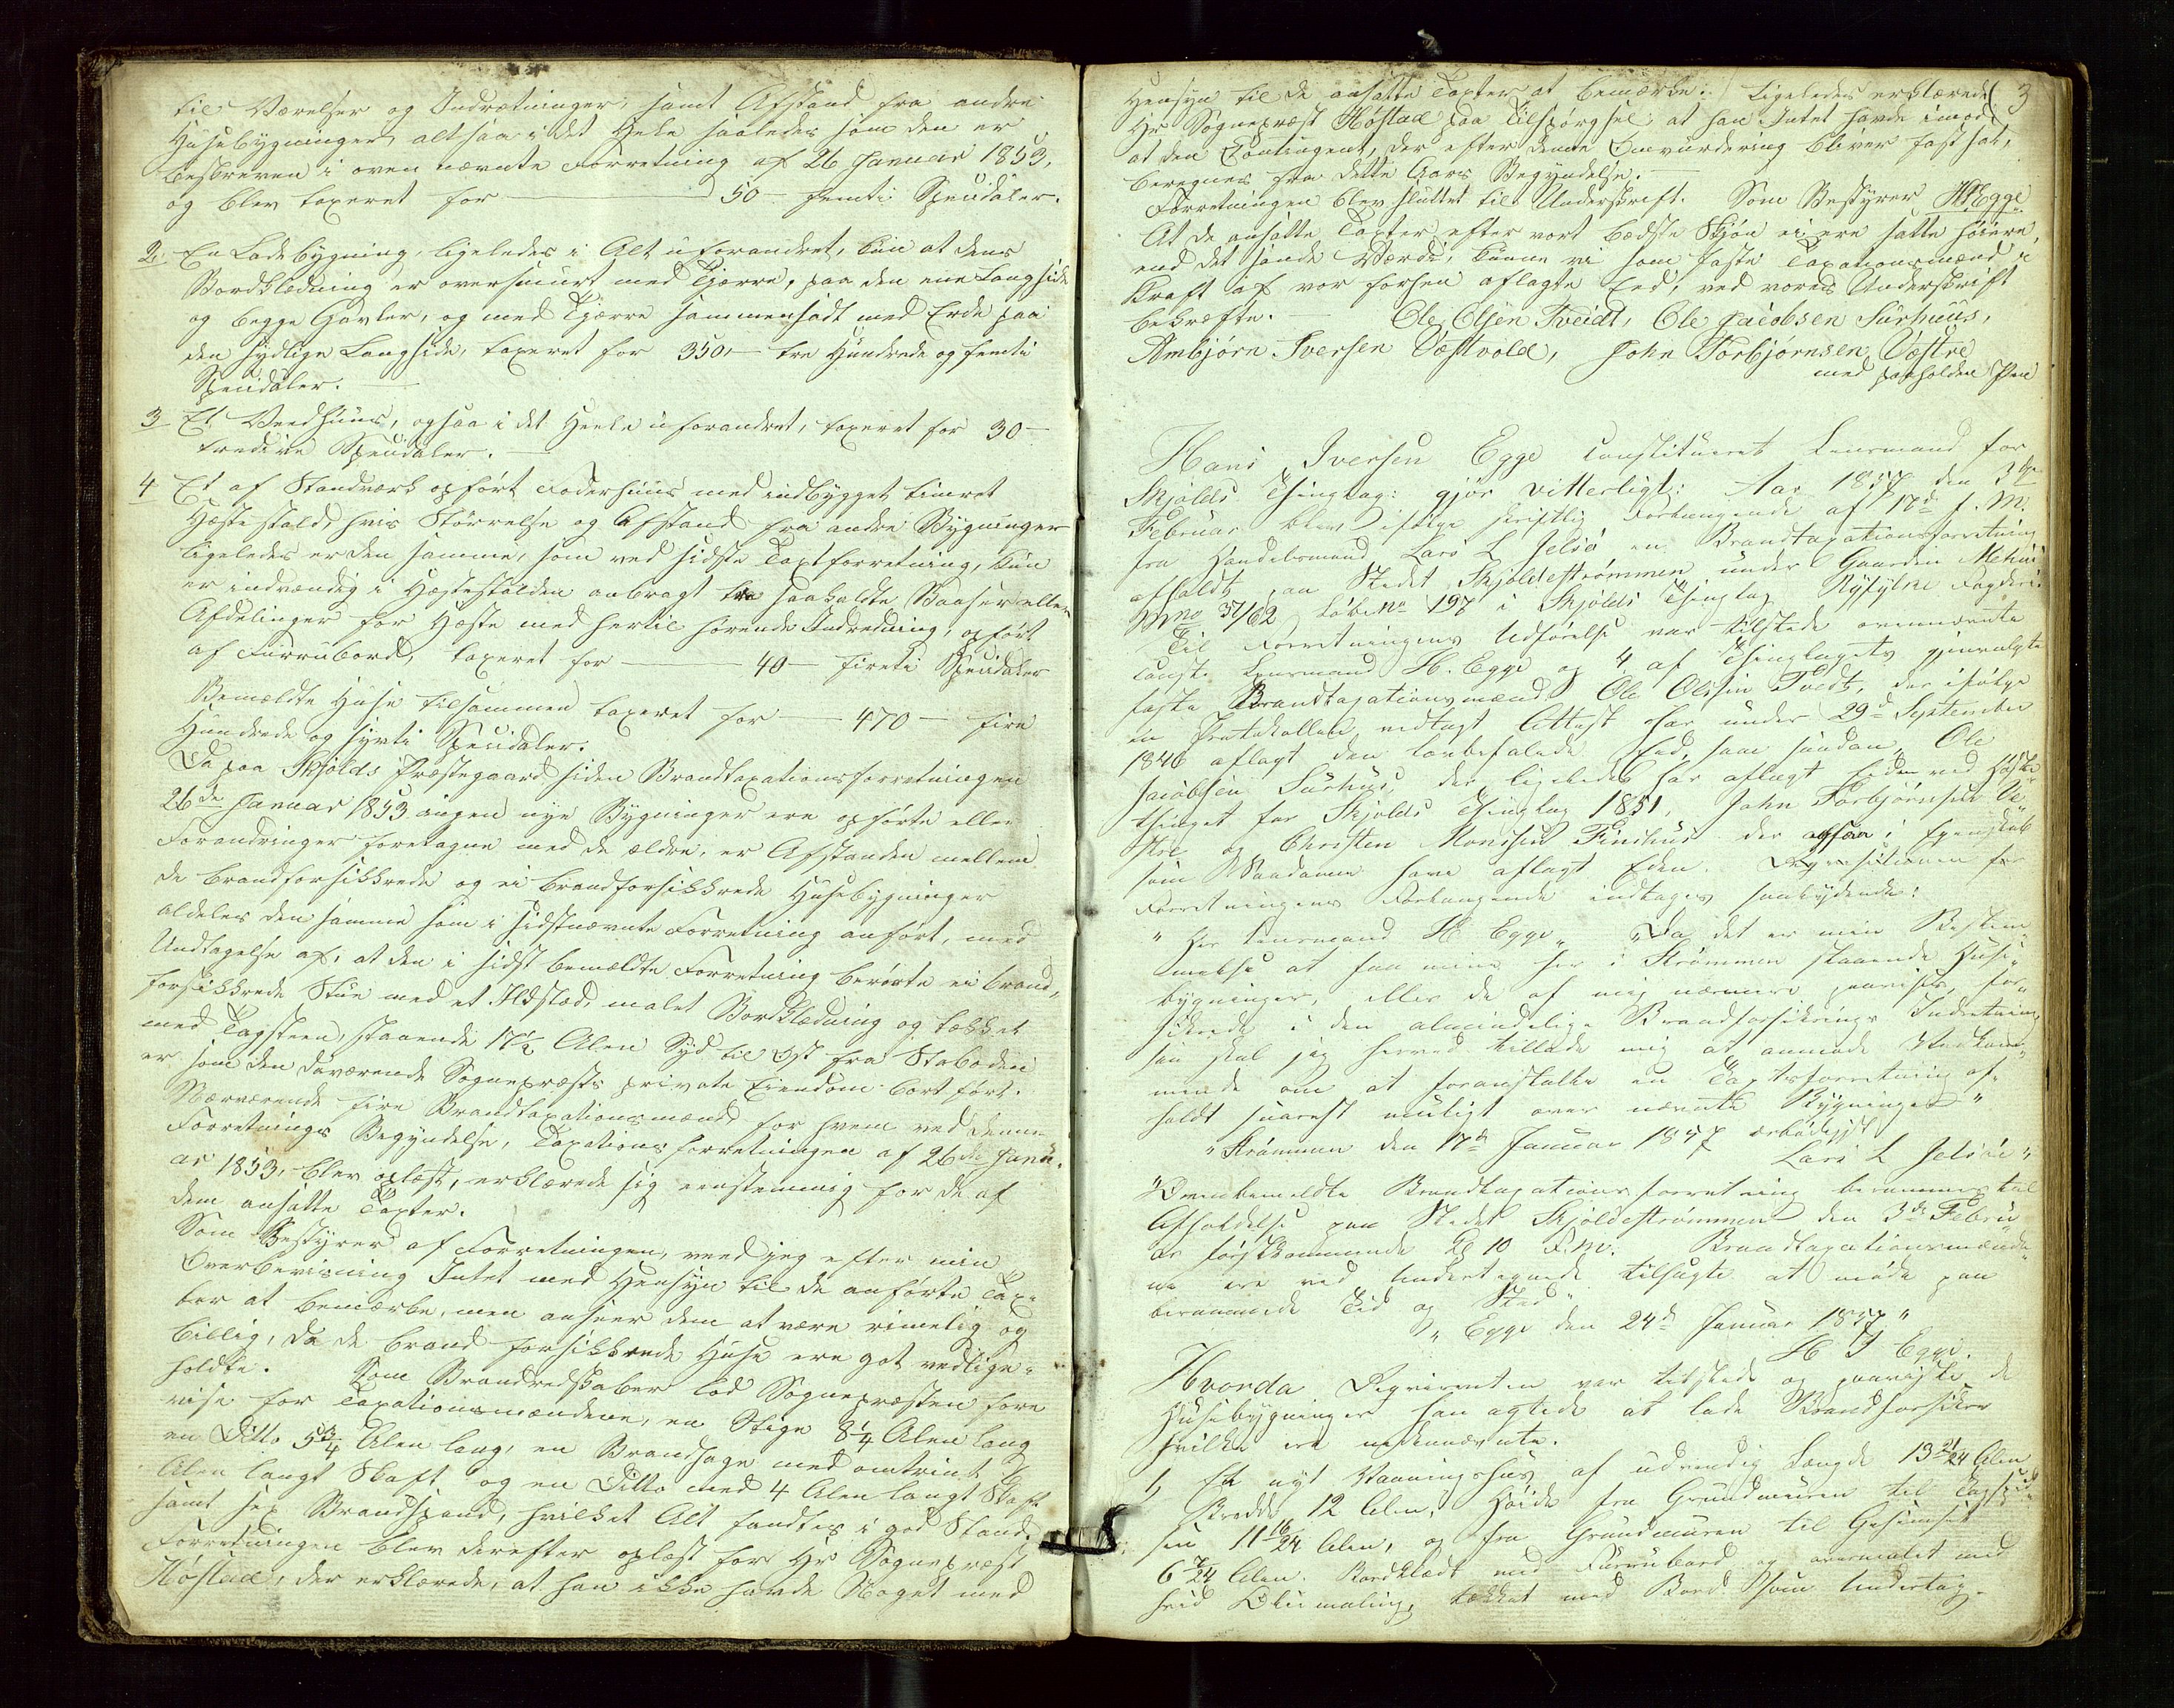 til Værelser og Indretninger, samt Afstand fra andre
Husebygninger, altsaa i det Hele saaledes som den er
beskreven i oven nævnte Forretning af 26 Januar 1853,
og blev taxeret for — 50 — femti Speidaler.
2. En Ladebygning, ligeledes i Alt uforandret, kun at dens
Bordklædning er oversmurt med Tjærre, paa den ene Langside
og begge Gavler, og med Tjærre sammensadt med Erde paa
den sydlige Langside, taxeret for 350,— tre Hundrede og femti
Speidaler. —
3 Et Veedhuus, ogsaa i det Heele uforandret, taxeret for 30 —
tredive Speidaler. —
4 Et af Standværk opført Foderhuus med indbygget timret
Hæstestald, hvis Størrelse og Afstand fra andre Bygninger
ligeledes er den samme, som ved sidste Taxtforretning, kun
er indvændig i Hæstestalden anbragt tre saakaldte Baaser eller
Afdelinger for Hæste med hertil hørende Indredning, opført
af Furrubord, taxeret for — 40 — fireti Speidaler
Bemældte Huse tilsammen taxeret for — 470 — fire
Hundrede og syvti Speidaler.
Da paa Skjolds Præstegaard siden Brandtaxationsforretningen
26de Januar 1853 ingen nye Bygninger ere opførte eller
Forandringer foretagne med de ældre, er Afstanden mellem
de brandforsikkrede og ei brandforsikkrede Husebygninger
aldeles den samme som i sidstnævnte Forretning anført, med
Undtagelse af, at den i sidst bemældte Forretning berørte ei brand,
forsikkrede Stue med et Ildsted, malet Bordklædning og tækket
med Tagsteen, staaende 17½ Alen Syd til Øst fra Staboden
er som den daværende Sognepræsts private Eiendom bort ført.
Nærværende fire Brandtaxationsmænd for hvem ved denne
Forretnings Begyndelse, Taxationsforretningen af 26de Janu,
ar 1853, blev oplæst, erklærede sig eenstemmig for de af
dem ansatte Taxter.
Som Bestyrer af Forretningen, veed jeg efter min
Overbeviisning Intet med Hensyn til de anførte Tax-
ter at bemærke, men anseer dem at være rimelig og
billig, da de brandforsikkrede Huse ere got vedlige-
holdte. Som Brandredskaber lod Sognepræsten fore
vise for Taxationsmændene, en Stige 8¼ Alen lang
en Ditto 5¾ Alen lang, en Brandhage med omtrint 6
Alen langt Skaft og en Ditto med 4 Alen langt Skaft
samt sex Brandspand, hvilket Alt fandtes i god Stand.
Forretningen blev derefter oplæst for Hr Sognepræst
Høstad, der erklærede, at han ikke havde Noget med
3
Hensyn til de ansatte Taxter at bemærke. Ligeledes erklærede
Hr Sognepræst Høstad paa Tilspørgsel at han Intet havde imod
at den Contingent, der efter denne Omvurdering bliver fastsat,
beregnes fra dette Aars Begyndelse. —
Forretningen blev sluttet til Underskrift. Som Bestyrer H Egge
At de ansatte Taxter efter vort bedste Skjøn ei ere satte høiere,
end det sande Værdi, kunne vi som faste Taxationsmænd i
Kraft af vor forhen aflagte Eed, ved vores Underskrift
bekræfte. — Ole Olsen Tveidt, Ole Jacobsen Surhuus,
Ambjørn Iversen Østvold, John Torbjørnsen Østre
med paaholden Pen
Hans Iversen Egge constitueret Lensmand for
Skjolds Thinglag: gjør vitterligt: Aar 1857 den 3die
Februar blev ifølge skriftlig Forlangende af 17de f. M.
fra Handelsmand Lars L Jelsøe en Brandtaxationsforretning
afholdt paa Stedet Skjoldestrømmen under Gaarden Mehus
Mno 37/62 Løbe No 197 i Skjolds Thinglag Ryfylke Fogderi.
Til Forretningens Udførelse var tilstede ovennævnte
const. Lensmand H. Egge og 4 af Thinglagets gjenvalgte
faste Brandtaxationsmænd Ole Olssen Tvedt, der ifølge
en Protokollen vedtagt Attest har under 29de September
1846 aflagt den lovbefalede Eed som saadan, Ole
Jacobsen Surhuus, der ligeledes har aflagt Eeden ved Høste-
thinget for Skjolds Thinglag 1851, John Torbjørnsen Ve-
stre og Christen Monssen Findhus der ogsaa i Egenskab
som Maadanne have aflagt Eden. Reqvisitionen for
Forretningens Forlangende indtages saalydende:
" Hr Lensmand H Egge" "Da det er min Bestem
melse at faa mine her i Strømmen staaende Huse-
bygninger, eller de af mig nærmere paavises, for-
sikrede i den almindelige Brandforsikrings Indretning
saa skal jeg herved tillade mig at anmode Vedkom-
mende om at foranstalte en Taxtsforretning af-
holdt snarest muligt over nævnte Bygninger "
"Strømmen den 17de Januar 1857 ærbødigst
Lars L Jelsøe "
"Ovenbemeldte Brandtaxationsforretning berammes til
Afholdelse paa Stedet Skjoldestrømmen den 3de Febru
ar førstkommende Kl 10 F.M. Brandtaxationsmænde-
ne ere ved Undertegnede tilsagte at møde paa
berammede Tid og Sted "
" Egge den 24de Januar 1857 "
H I Egge.
Hvorda Reqvirenten var tilstede og paaviste de
Husebygninger han agtede at lade Brandforsikre
hvilke ere nedennævnte.
1, Et nyt Vaaningshus af udvendig Længde 13 21/24 Alen
Bredde 12 Alen, Høide fra Grundmuren til Tagspid-
sen 11 16/24 Alen, og fra Grundmuren til Gesimset
6 7/24 Alen. Bordklædt med Furrubord og overmalet med
hvid Oliemaling, tækket med Bord som Undertag-